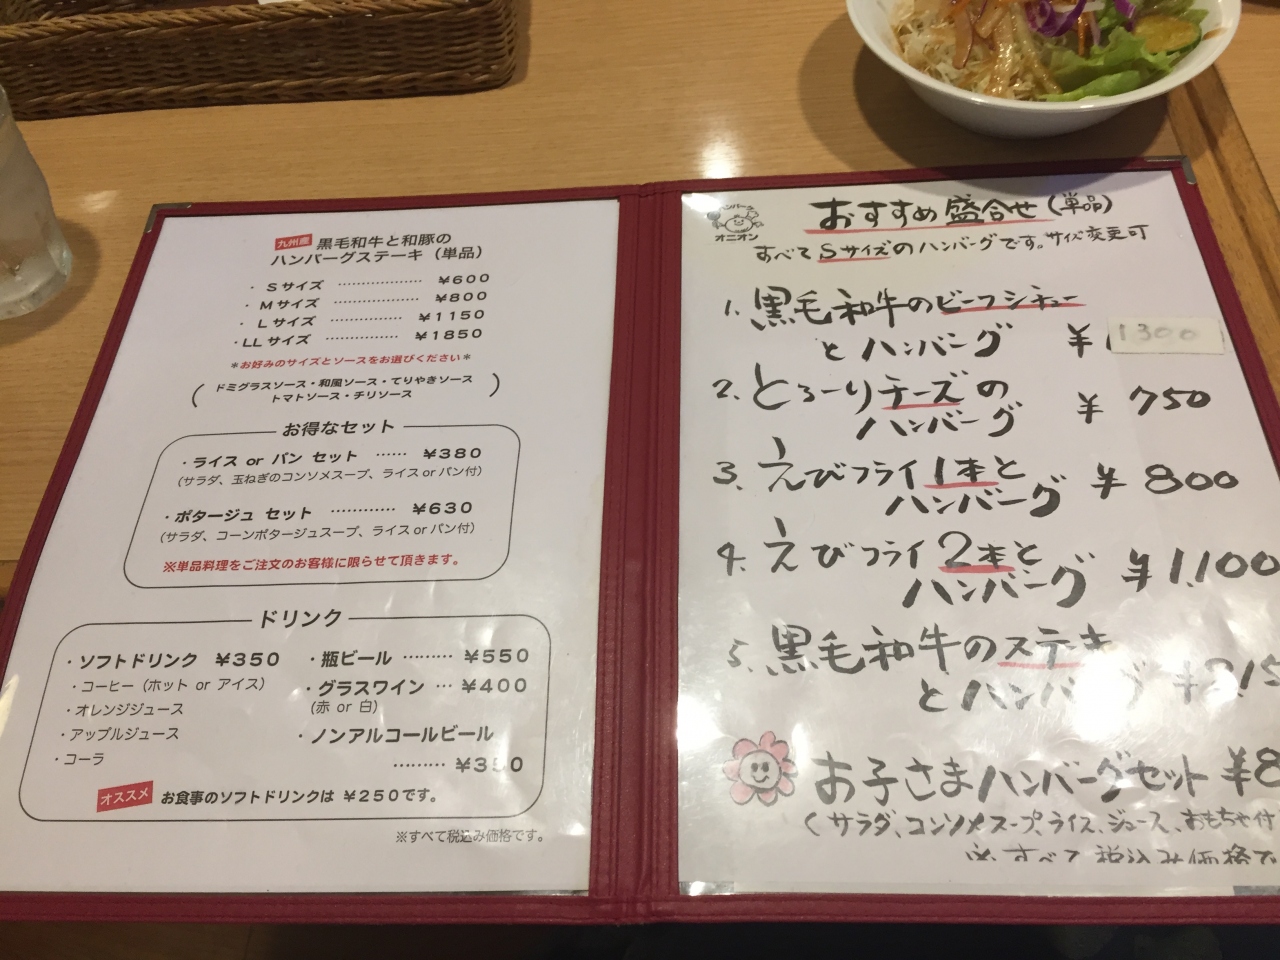 九州産 黒毛和牛と和豚の
ハンバーグステーキ（単品）
・Sサイズ ……………… ¥600
・Mサイズ ……………… ¥800
・Lサイズ …………… ¥1150
・LLサイズ …………… ¥1850
*お好みのサイズとソースをお選びください*
（ドミグラスソース・和風ソース・てりやきソース
トマトソース・チリソース）
お得なセット
・ライス or パン セット …… ¥380
（サラダ、玉ねぎのコンソメスープ、ライス or パン付）
・ポタージュ セット ………… ¥630
（サラダ、コーンポタージュスープ、ライス or パン付）
※単品料理をご注文のお客様に限らせて頂きます。
ドリンク
・ソフトドリンク ¥350
・コーヒー（ホット or アイス）
・オレンジジュース
・アップルジュース
・コーラ
・瓶ビール ……… ¥550
・グラスワイン … ¥400
（赤 or 白）
・ノンアルコールビール
……… ¥350
オススメ お食事のソフトドリンクは ¥250です。
※すべて税込み価格です。
ハンバーグ
オニオン
おすすめ盛合せ（単品）
すべてSサイズのハンバーグです。サイズ変更可
1. 黒毛和牛のビーフシチュー
とハンバーグ ¥1300
2. とろーりチーズの
ハンバーグ ¥750
3. えびフライ1本と
ハンバーグ ¥800
4. えびフライ2本と
ハンバーグ ¥1,100
5. 黒毛和牛のステーキ
とハンバーグ
お子さまハンバーグセット ¥8
（サラダ、コンソメスープ、ライス、ジュース、おもちゃ付
※すべて税込み価格で